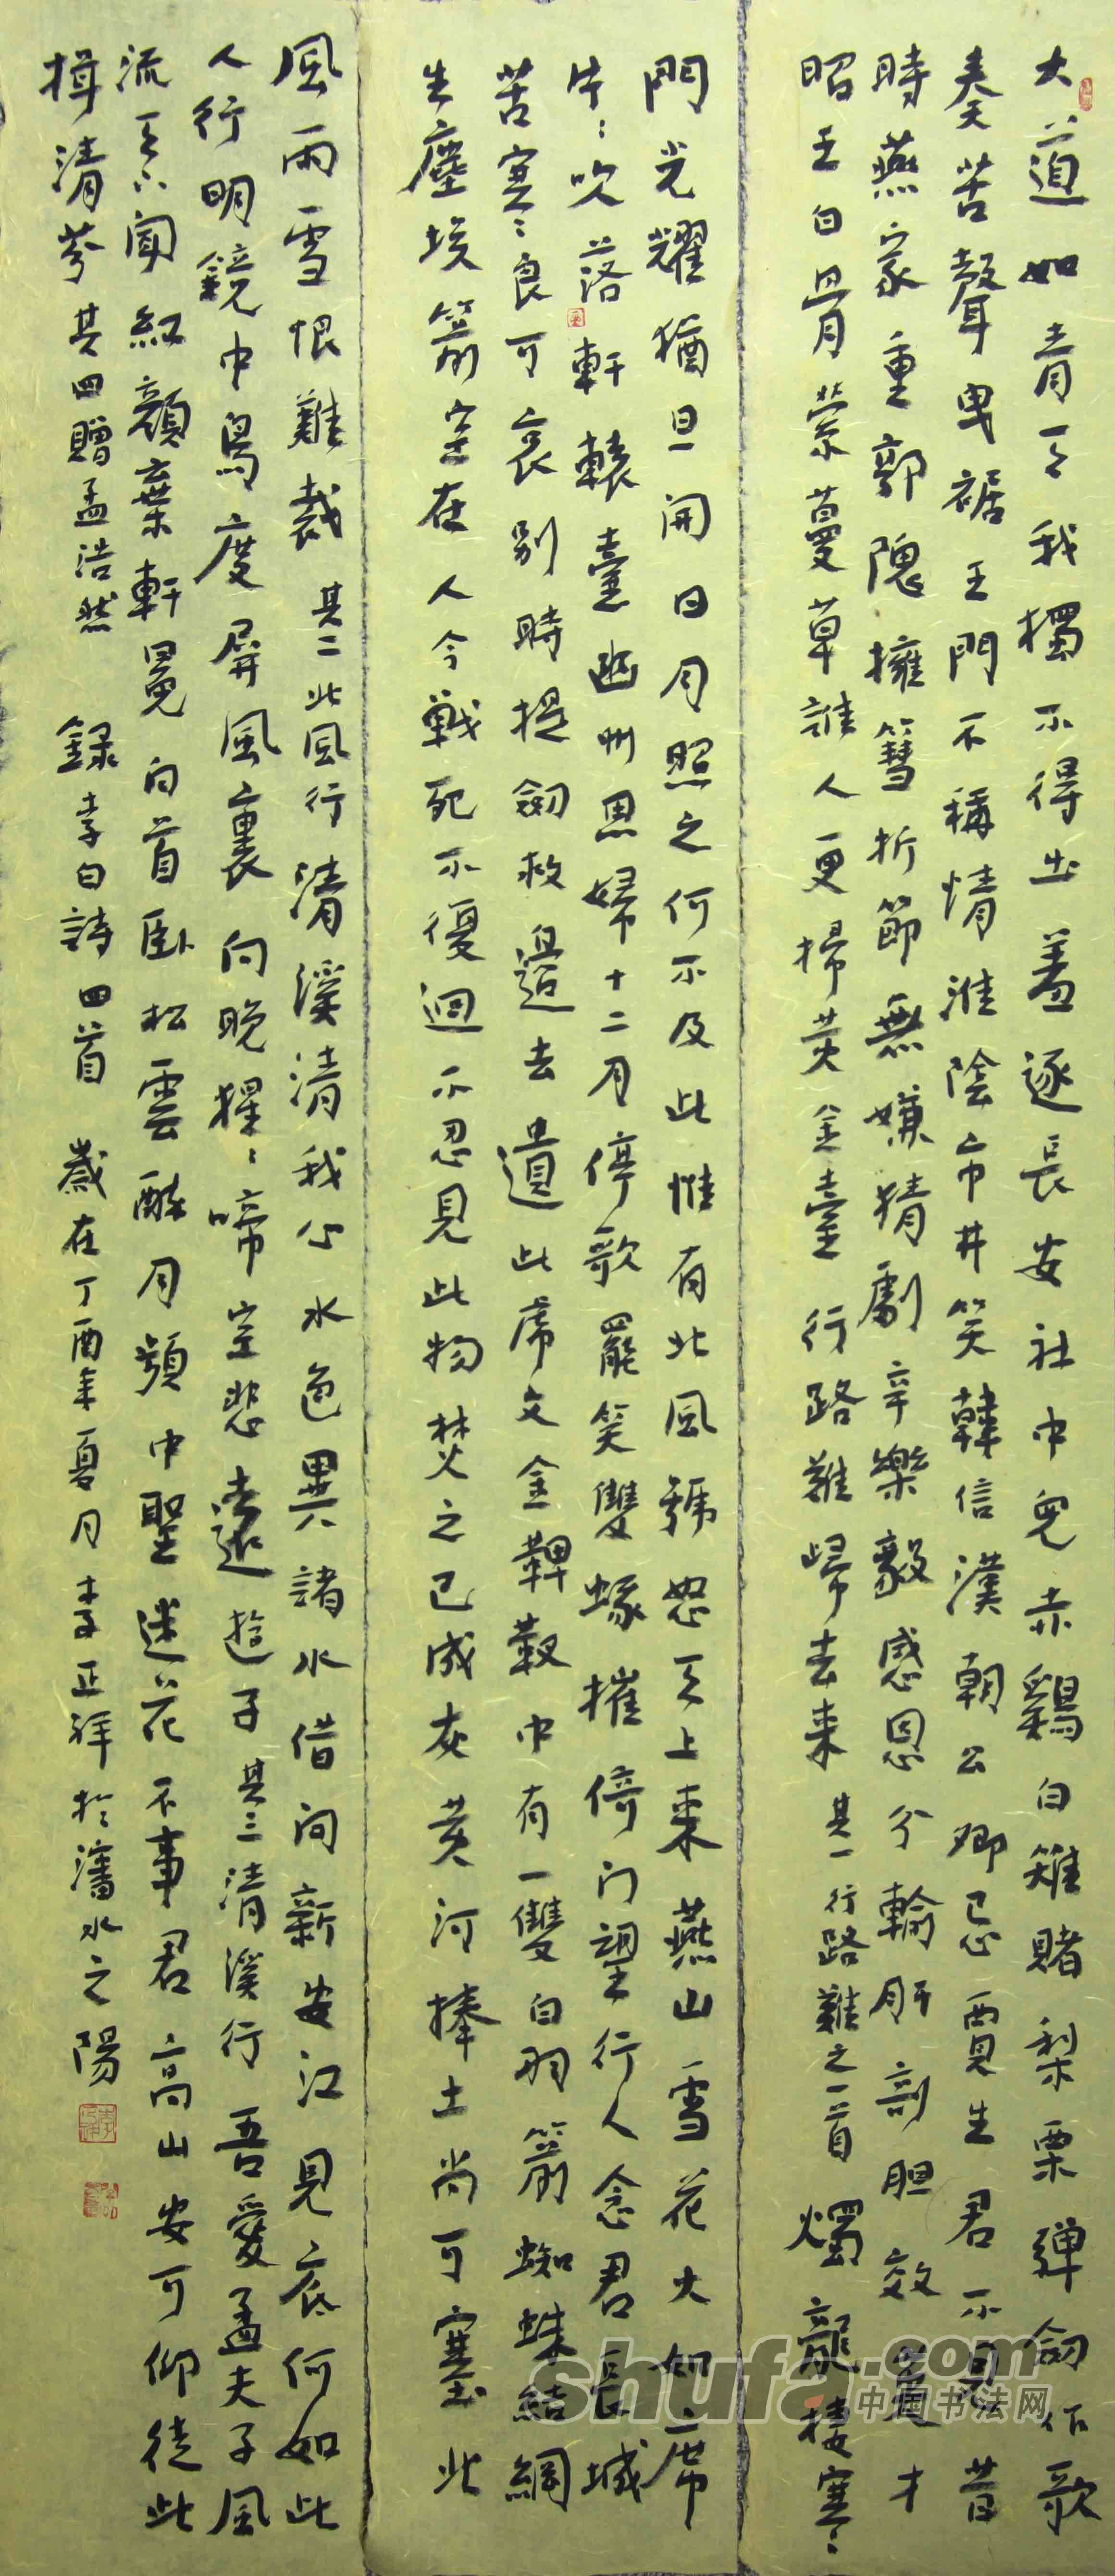 大道如青天我獨不得出羞逐長安社中兒赤鷄白雉賭梨栗彈劍作歌
奏苦聲曳裾王門不稱情淮陰市井笑韓信漢朝公卿忌賈生君不見昔
時燕家重郭隗擁篲折節無嫌猜劇辛樂毅感恩分輸肝剖胆效英才
昭王白骨縈蔓草誰人更掃黃金臺行路難歸去來 其一行路難之一首 燭龍棲寒〻
門光耀猶旦開日月照之何不及此惟有北風號怒天上來燕山雪花大如席
片〻吹落軒轅臺幽州思婦十二月停歌罷笑雙蛾摧倚门望行人念君長城
苦寒〻良可哀別時提劍救邊去遺此虎文金鞞靫中有一雙白羽箭蜘蛛結網
生塵埃箭空在人今戰死不復迴不忍見此物焚之已成灰黃河捧土尚可塞北
風雨雪恨難裁 其二北風行 清溪清我心水色異諸水借问新安江見底何如此
人行明鏡中鳥度屏風裏向晚猩〻啼空悲遠遊子 其三清溪行 吾愛孟夫子風
流天下聞紅顏棄軒冕白首臥松雲醉月頻中聖迷花不事君高山安可仰徒此
揖清芬 其四贈孟浩然 錄李白詩四首 歲在丁酉年夏月李正祥於瀋水之陽
shufa.com
中国书法网